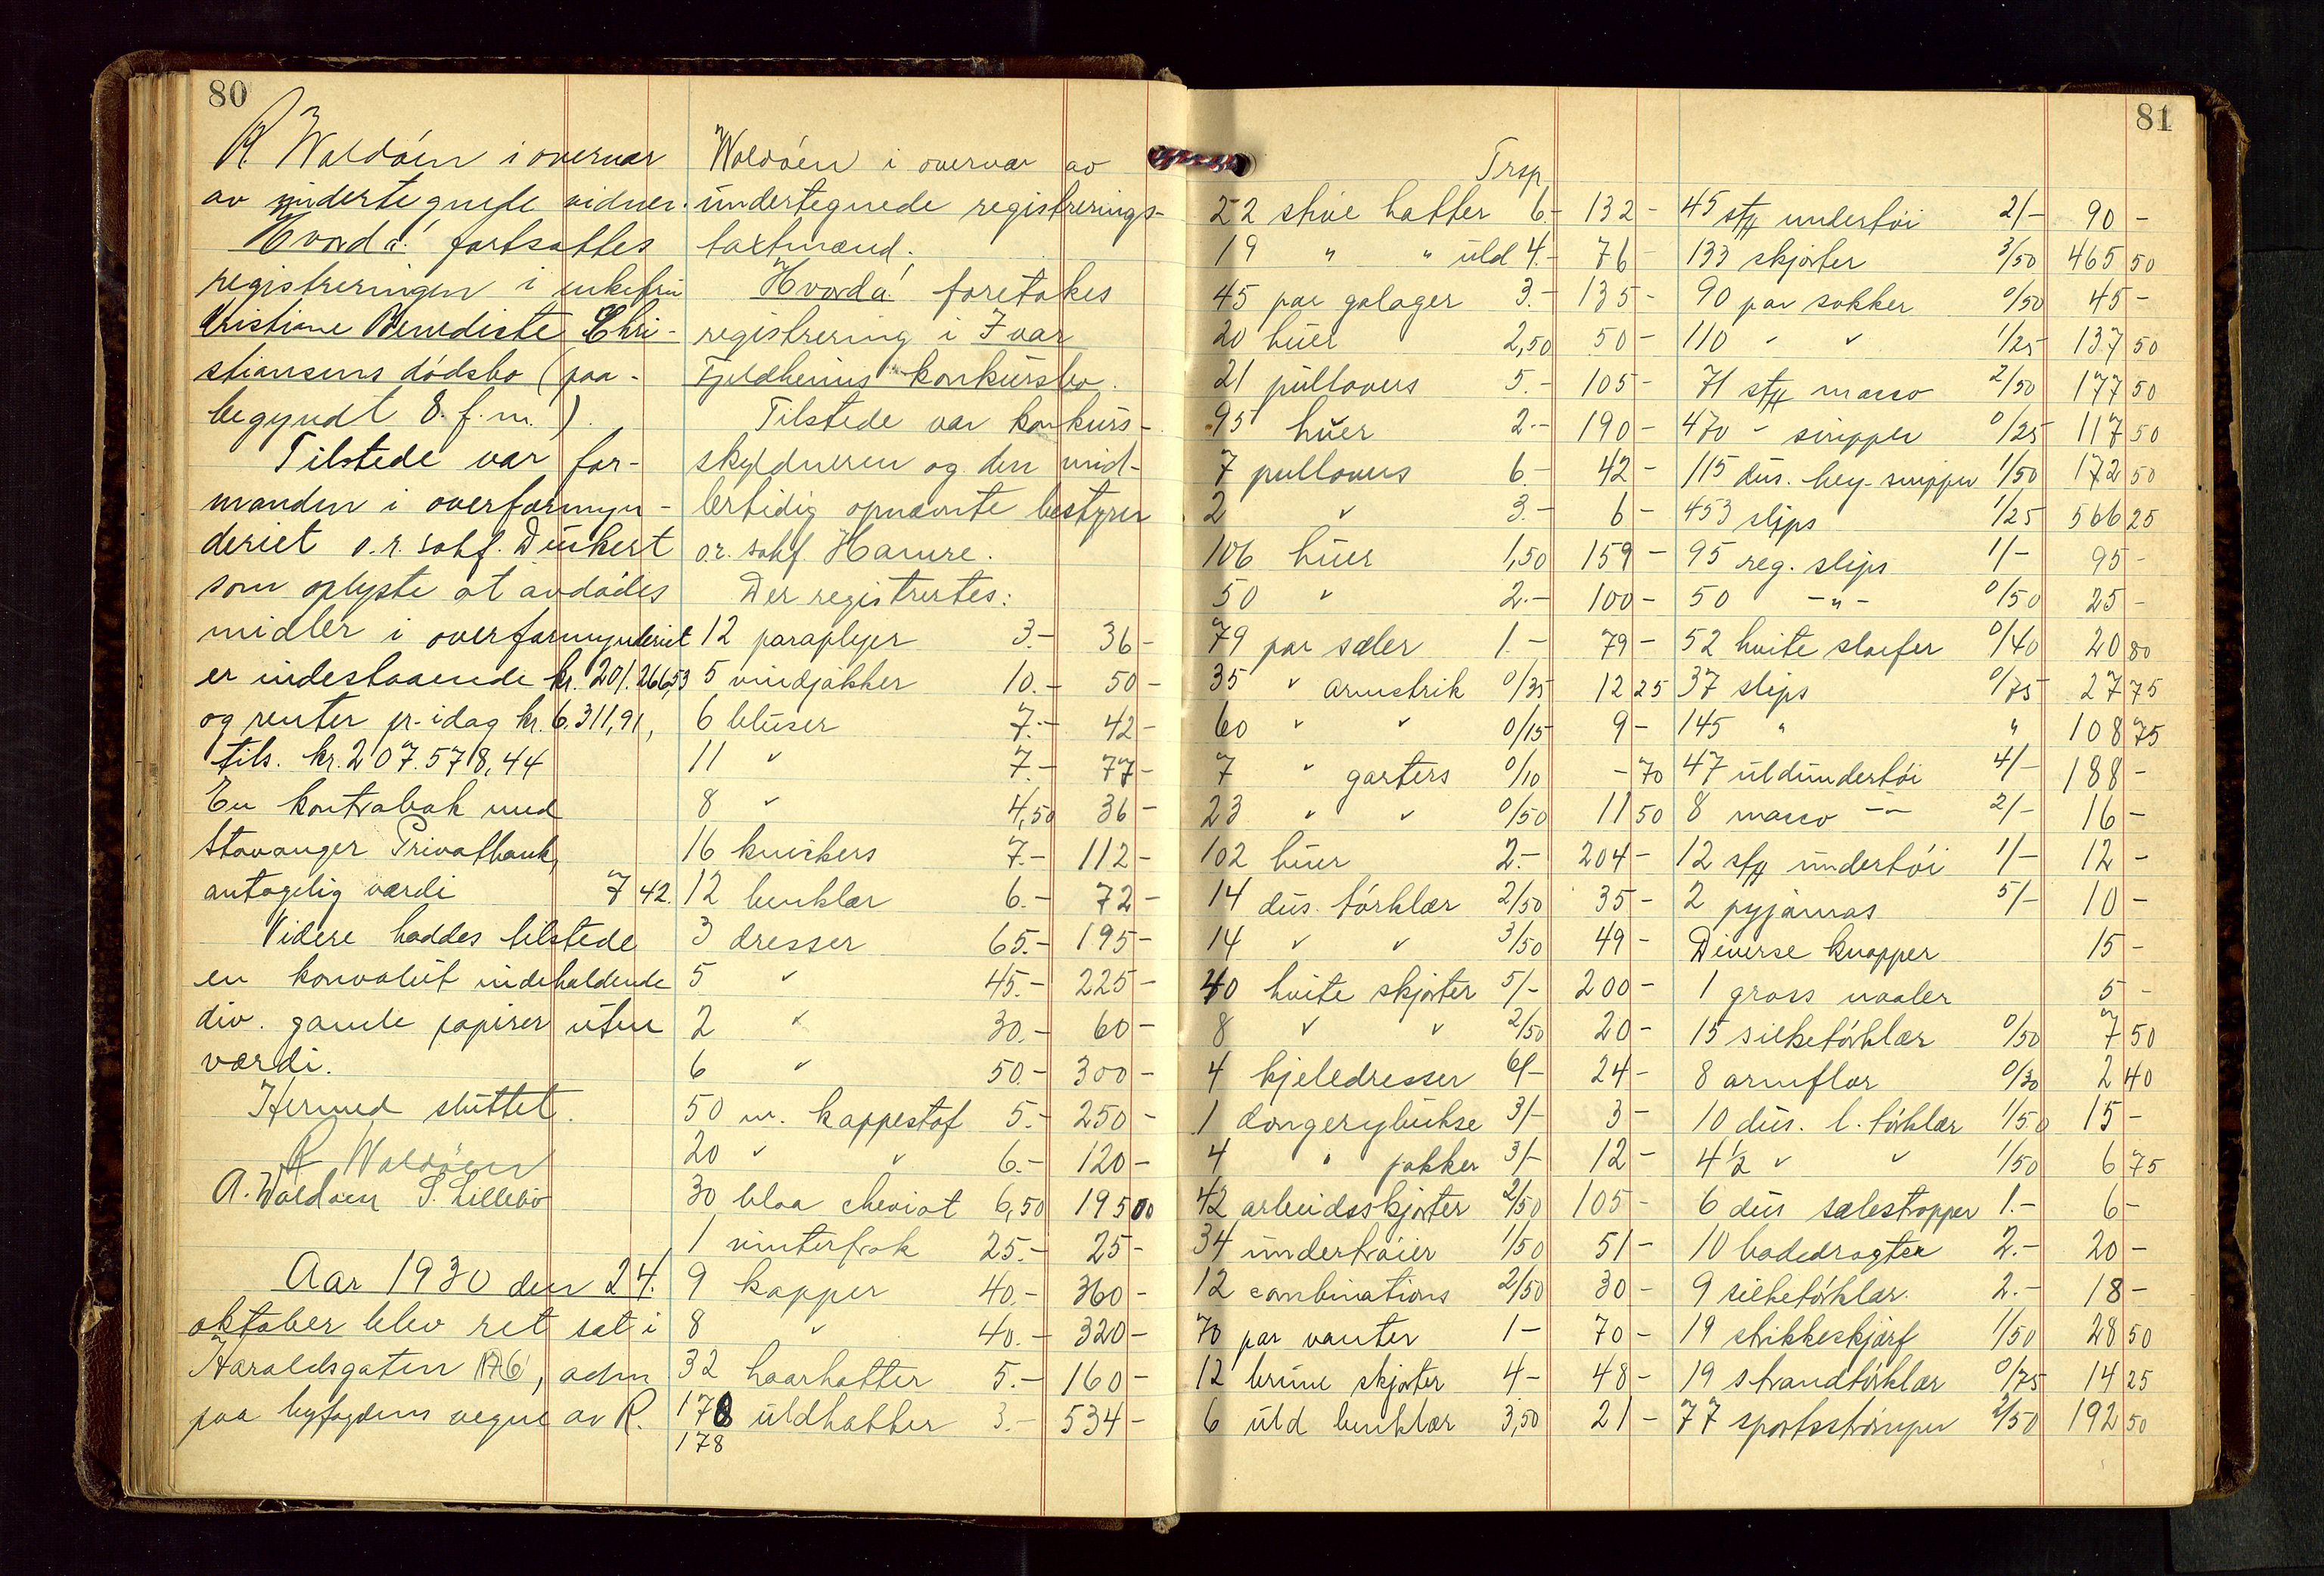 80
R Waldøen i overvær
av undertegnede vidner.
Hvorda! fortsattes
registreringen i enkefru
Kristiane Benedicte Chri-
stiansens dødsbo (paa-
begyndt 8. f. m.)
Tilstede var for-
manden i overformyn-
deriet o.r. sakf. Dückert
som oplyste at avdødes
midler i overformynderiet
er indestaaende kr. 201.266,53
og renter pr. idag kr. 6.311,91,
tils. kr. 207.578,44
En kontrabok med
Stavanger Privatbank,
antagelig værdi 7 42.
Videre haddes tilstede
en konvolut indeholdende
div. gamle papirer uten
værdi.
Hermed sluttet.
R Waldøen
A. Waldøen S. Lillebø
Aar 1930 den 24.
oktober blev ret sat i
Haraldsgaten 176, adm
paa byfogdens vegne av R.
Waldøen i overvær av
undertegnede registrerings-
takstmænd.
Hvorda! foretokes
registrering i Ivar
Fjeldheims konkursbo.
Tilstede var konkurs-
skyldneren og den mid-
lertidig opnævnte bestyrer
o.r. sakf. Hamre.
Der registrertes:
12 paraplyer 3.- 36-
5 vindjakker 10.- 50-
6 bluser 7.- 42-
11 " 7.- 77-
8 " 4,50 36-
16 knickers 7.- 112-
12 benklær 6.- 72-
3 dresser 65.- 195-
5 " 45.- 225-
2 " 30.- 60-
6 " 50.- 300-
50 m. kappestof 5.- 250-
20 " " 6.- 120-
30 blaa cheviot 6,50 195 00
1 vinterfrak 25.- 25-
9 kapper 40.- 360-
8 " 40.- 320-
32 haarhatter 5.- 160-
178 uldhatter 3.- 534-
178
81
Trsp
22 stive hatter 6.- 132-
19 " " uld 4.- 76-
45 par galoger 3.- 135-
20 huer 2,50 50-
21 pullovers 5.- 105-
95 huer 2.- 190-
7 pullovers 6.- 42-
2 " 3.- 6-
106 huer 1,50 159-
50 " 2.- 100-
79 par sæler 1.- 79-
35 " armstrik 0/35 12 25
60 " " 0/15 9-
7 " garters 0/10 -70
23 " " 0/50 11 50
102 huer 2.- 204-
14 dus. tørklær 2/50 35-
14 " " 3/50 49-
40 hvite skjorter 5/- 200-
8 " " 2/50 20-
4 kjeledresser 6/- 24-
1 dongerybukse 3/- 3-
4 " jakker 3/- 12-
42 arbeidsskjorter 2/50 105-
34 undertrøier 1/50 51-
12 combinations 2/50 30-
70 par vanter 1- 70-
12 brune skjorter 4- 48-
6 uld benklær 3,50 21-
45 stk undertøi 2/- 90-
133 skjorter 3/50 465 50
90 par sokker 0/50 45-
110 " " 1/25 137 50
71 stk macco 2/50 177 50
470 - snipper 0/25 117 50
115 dus. hey. snipper 1/50 172 50
453 slips 1/25 566 25
95 reg. slips 1/- 95-
50 -"- 0/50 25-
52 hvite sløifer 0/40 20 80
37 slips 0/75 27 75
145 " " 108 75
47 uldundertøi 4/- 188-
8 macco -"- 2/- 16-
12 stk undertøi 1/- 12-
2 pyjamas 5/- 10-
Diverse knapper 15-
1 gross naaler 5-
15 silketørklær 0/50 7 50
8 armflor 0/30 2 40
10 dus. l. tørklær 1/50 15-
4½ " " 1/50 6 75
6 dus sælestropper 1.- 6-
10 badedragter 2.- 20-
9 silketørklær. 2.- 18-
19 strikkeskjærf 1/50 28 50
19 strandtørklær 0/75 14 25
77 sportsstrømper 2/50 192 50